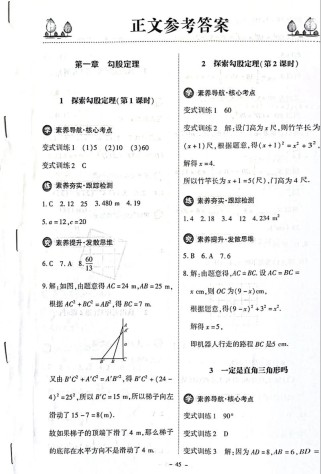 正文参考答案
第一章 勾股定理
1 探索勾股定理(第1课时)
学 素养导航·核心考点
变式训练1 (1)5 (2)10 (3)60
变式训练2 C
练 素养夯实·跟踪检测
1. C 2. 12 25 3. 480 m 4. 19
5. a=12,c=20
素养提升·发散思维
6. C 7. A 8. 60/13
9. 解:如图,由题意得 AC=24 m,AB=25 m,
根据 AC²+BC²=AB²,得 BC=7 m.
A
B
C
又由 B'C²+A'C²=A'B'²,得 B'C²+(24-
4)²=25²,所以 B'C=15 m,所以梯子向左
滑动了 15-7=8(m).
故如果梯子的顶端下滑了 4 m,那么梯子
的底部在水平方向不是滑动了 4 m.
2 探索勾股定理(第2课时)
学 素养导航·核心考点
变式训练1 60
变式训练2 解:设门高为 x 尺,则竹竿长为
(x+1)尺,根据题意,得(x+1)²=x²+3²,
解得 x=4.
所以竹竿长为 x+1=5(尺),门高为 4 尺.
练 素养夯实·跟踪检测
1. 4 2. 18 3. 4 12 4. 234 m²
素养提升·发散思维
5. B 6. A 7. 6
8. 解:由题意得,AC=BC. 设 AC=BC=
x cm,则 OC 为(9-x)cm,
根据题意,得(9-x)²+3²=x².
解得 x=5,
即机器人行走的路程 BC 是5 cm.
3 一定是直角三角形吗
学 素养导航·核心考点
变式训练1 90°
变式训练2 D
变式训练3 解:因为 AD=8,AB=6,BD=
- 45 -